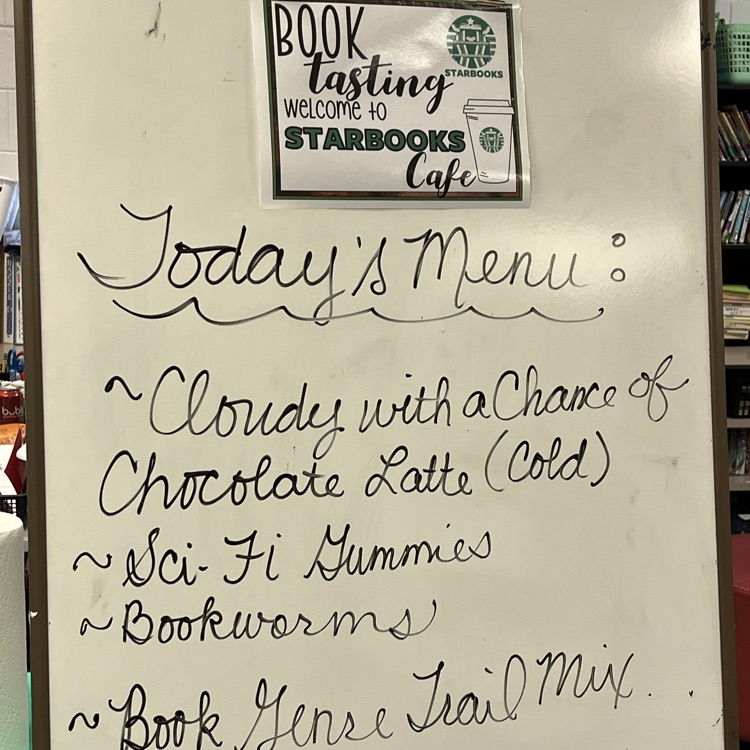 BOOK
tasting
STARBOOKS
welcome to
STARBOOKS
Cafe
Today's Menu:
~ Cloudy with a Chance of
Chocolate Latte (Cold)
~ Sci-Fi Gummies
~ Bookworms
~ Book Genre Trail Mix.